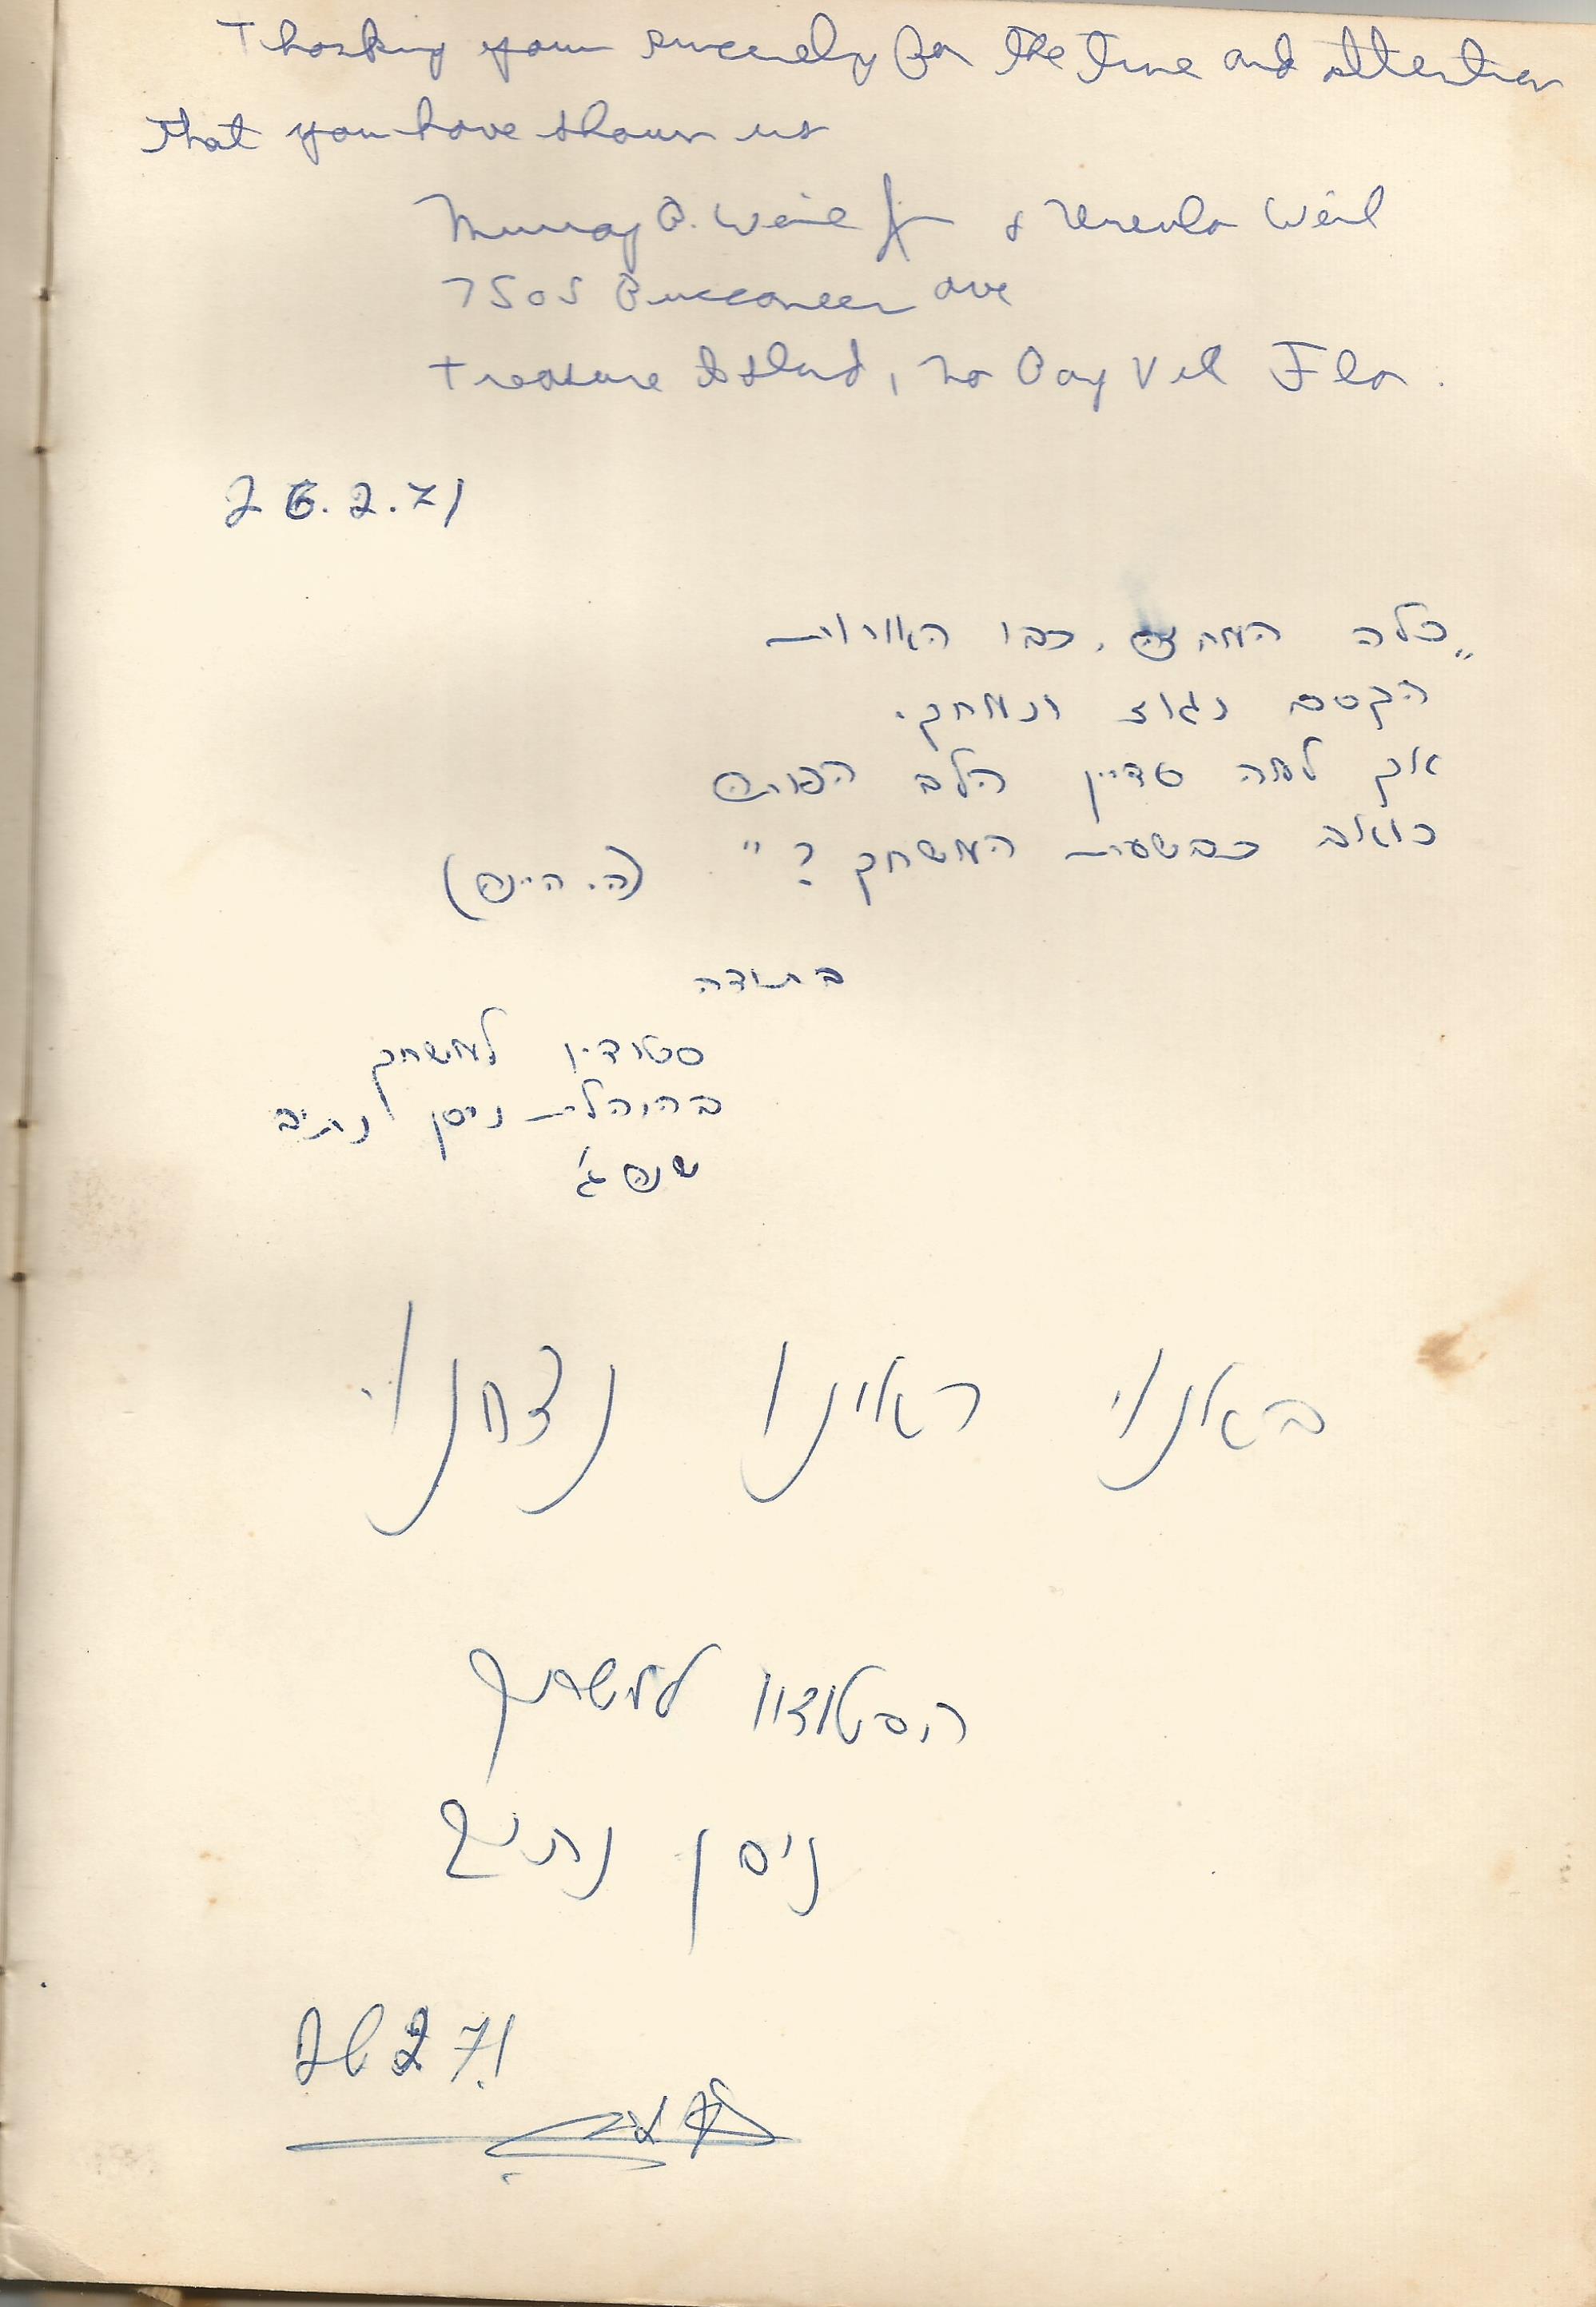 Thanking you sincerely for the time and attention
that you have shown us
Murray B. Weil Jr & Ursula Weil
7505 Buccaneer Ave
Treasure Island, No Bay Vil Fla.
26.2.71
"כלה המחזה, כבו האורות
הקסם נגוז ונמחק.
אך למה עדיין הלב הפותה
כואב כבשעת המשחק?" (ה. היינה)
בתודה
סטודיו למשחק
בהנהלת ניסן נתיב
שנה ג'
באנו ראינו נצחנו
הסטודיו למשחק
ניסן נתיב
26 2 71